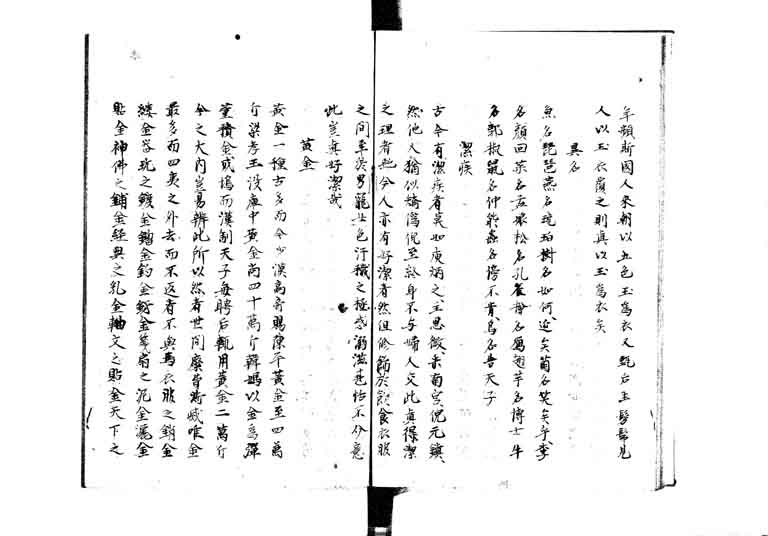 年頻斯國人來朝以五色玉為衣又甄后玉
人以玉衣覆之則真以玉為衣矣
異名
魚名琵琶燕名琥珀樹名如何迷矣菊名笑矣乎李
名顏回菜名 松名孔雀 名鳳翅芋名博士牛
名郭椒鼠名仲能 名傍不肯鳥名告天子
潔疾
古今有潔疾者莫如庾炳之王思微米南宮倪元鎮
然他人猶似矯偽倪至終身不与婦人交此真得潔
之理者也今人亦有好潔者然但修飾於飲食衣服
之間至於男寵女色汙穢之極惑溺滋甚恬不介意
此豈真好潔哉
黃金
黃金一種古多而今少漢高帝賜陳平黃金至四萬
斤梁孝王沒庫中黃金尚四十萬斤韓嫣以金為彈
董積金或塢而漢制天子每聘后輒用黃金二萬斤
今之大內豈易辨此所以然者世间 唯金
最多而四夷之外去而不返者不與焉衣服之銷金
縷金 之鍍金 金釣金 金箋扇之泥金灑金
貼金神佛之銷金經典之乳金軸文之貼金天下之